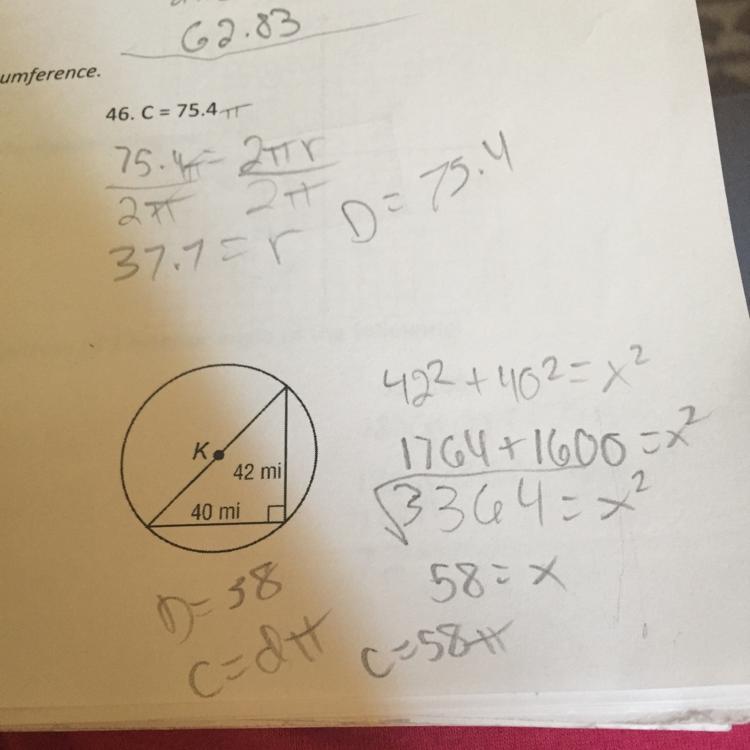 62.83
umference.
46. C = 75.4π
75.4π = 2πr
2π 2π
37.7 = r
D = 75.4
K
42 mi
40 mi
42² + 40² = x²
1764 + 1600 = x²
√3364 = x²
58 = x
D = 58
C = dπ
C = 58π